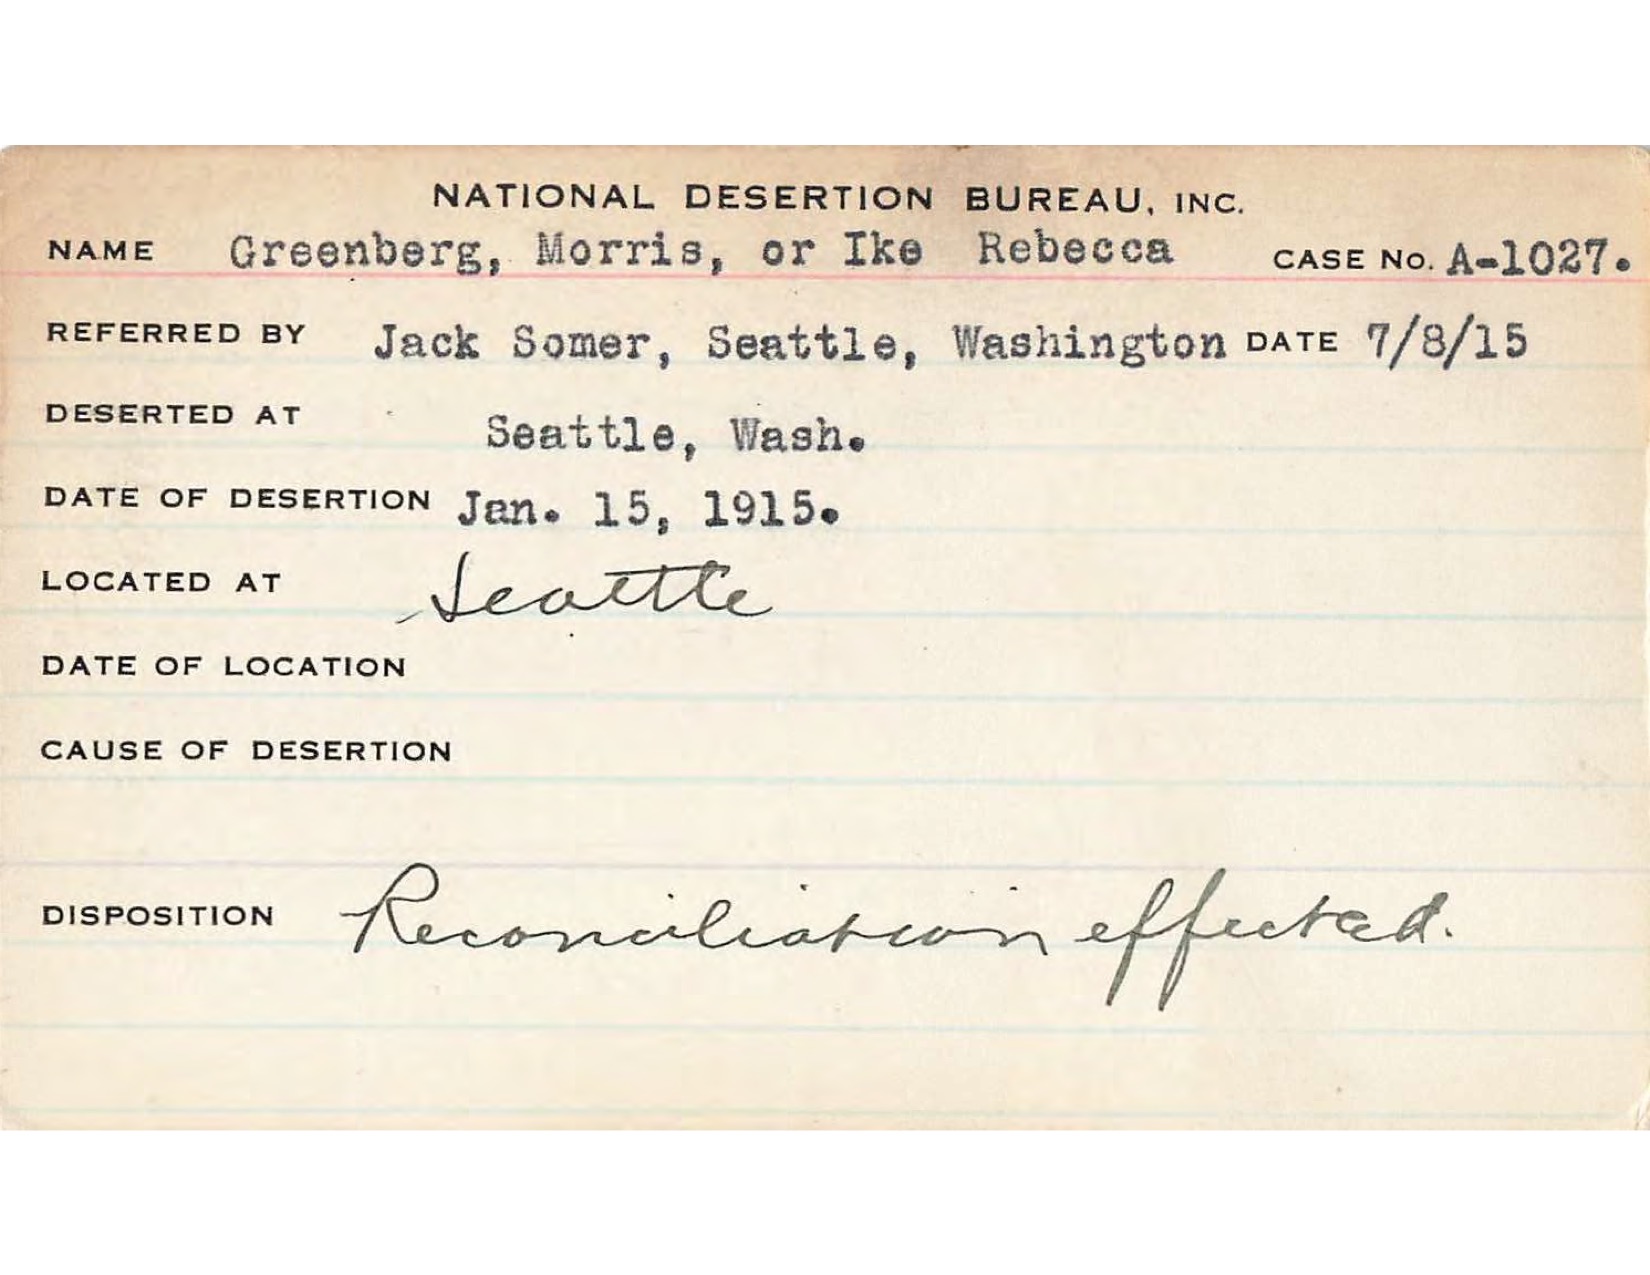 NATIONAL DESERTION BUREAU, INC.
NAME Greenberg, Morris, or Ike Rebecca CASE No. A-1027.
REFERRED BY Jack Somer, Seattle, Washington DATE 7/8/15
DESERTED AT Seattle, Wash.
DATE OF DESERTION Jan. 15, 1915.
LOCATED AT Seattle
DATE OF LOCATION
CAUSE OF DESERTION
DISPOSITION Reconciliation effected.